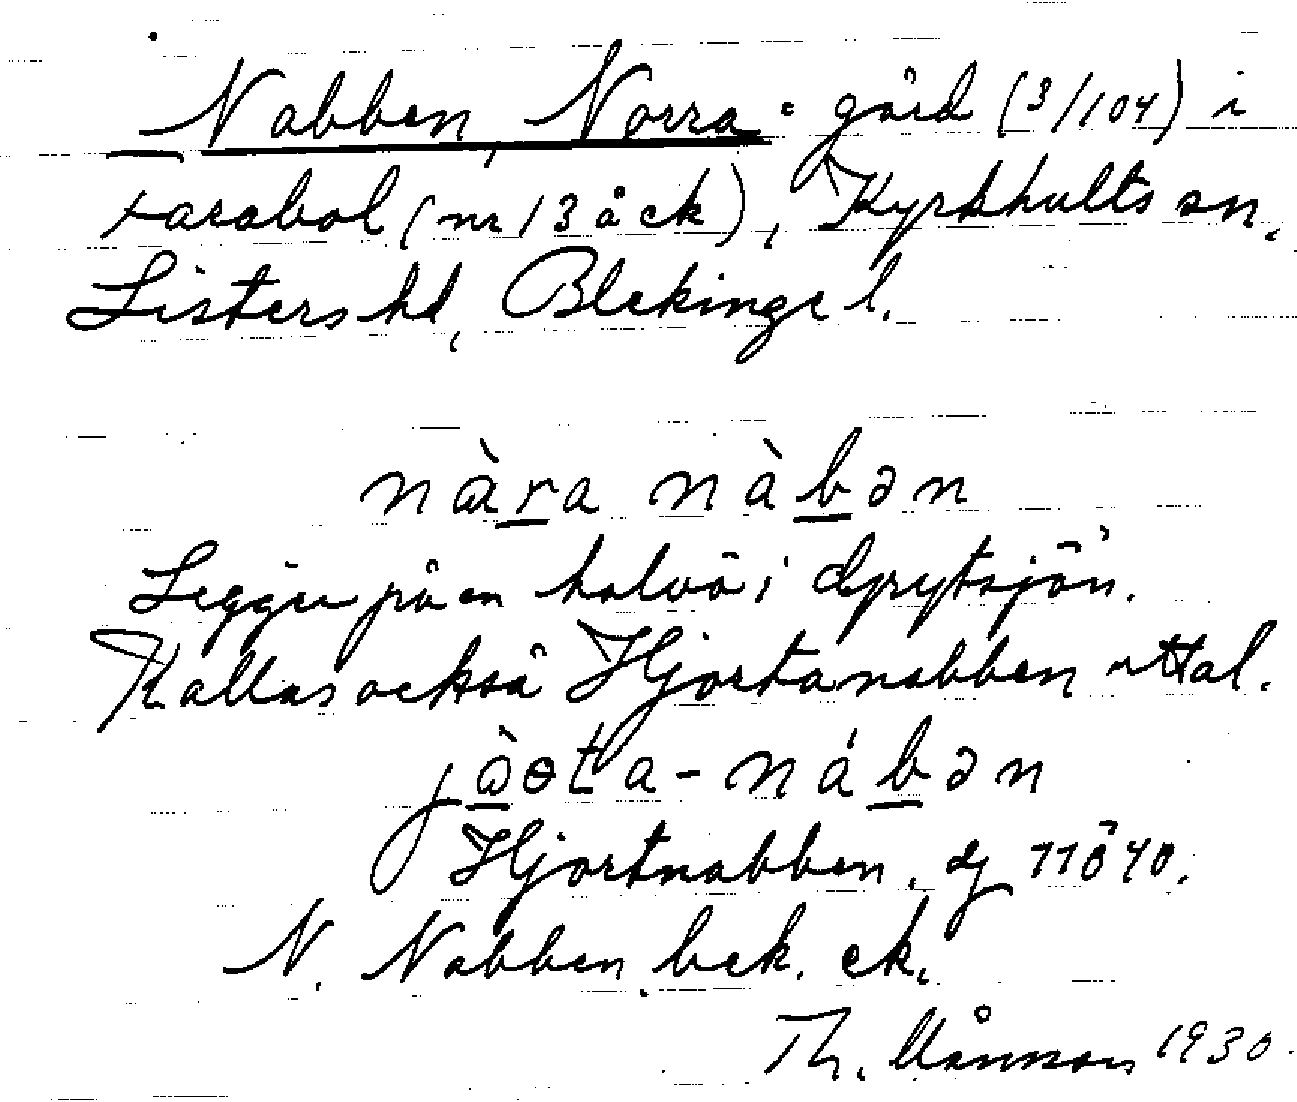 Nabben, Norra: gård (3/104) i
Farabol (nr 13 å ck), Kyrkhults sn,
Listers hd, Blekinge l.
nàra nàbən
Ligger på en halvö i
Kallas också Hjortanabben uttal.
jàɵta-nábən
Hjortnabben,
N. Nabben bek. ek.
Th. Månsson 1930.